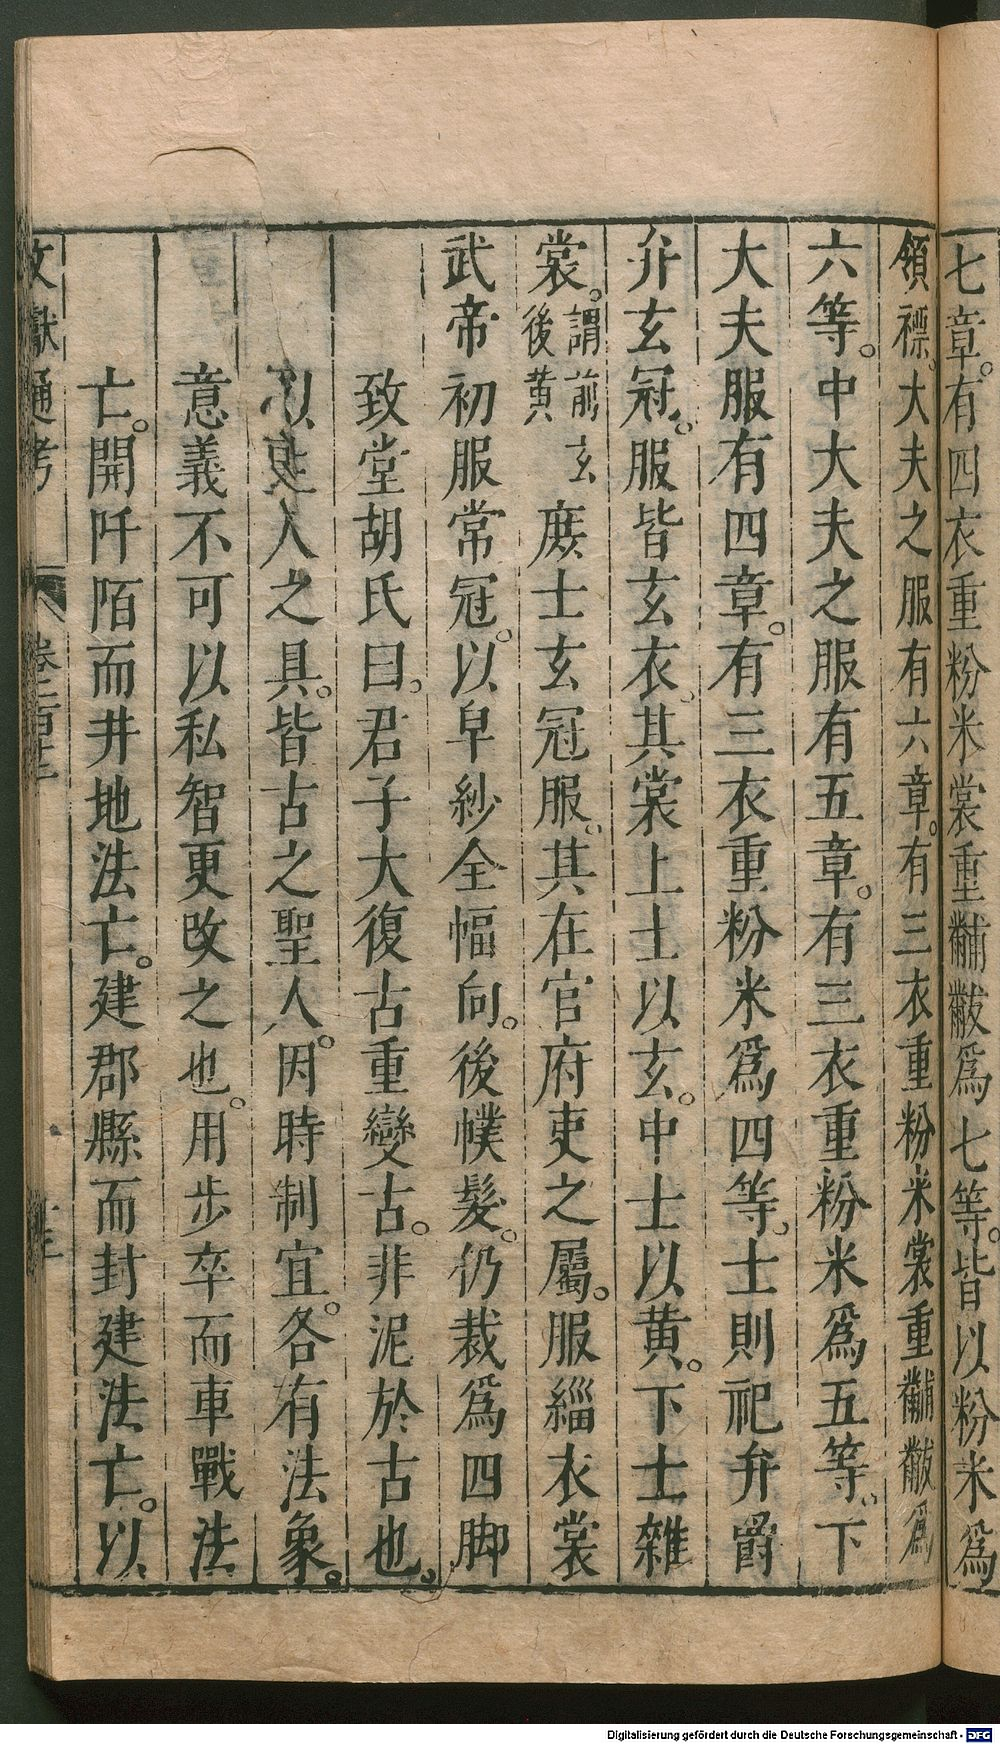 七章。有四衣重粉米裳重黼黻爲七等。皆以粉米爲
領褾。大夫之服有六章。有三衣重粉米裳重黼黻爲
六等。中大夫之服有五章。有三衣重粉米爲五等。下
大夫服有四章。有三衣重粉米爲四等。士則祀弁爵
弁玄冠。服皆玄衣。其裳上士以玄。中士以黄。下士雜
裳。謂前玄後黄 庶士玄冠服。其在官府吏之屬。服緇衣裳
武帝初服常冠。以皁紗全幅向。後幞髮。仍裁爲四脚
致堂胡氏曰。君子大復古重變古。非泥於古也。
以 人之具。皆古之聖人。因時制宜。各有法象。
意義不可以私智更改之也。用步卒而車戰法
亡。開阡陌而井地法亡。建郡縣而封建法亡。以
文獻通考 卷一百十二
Digitalisierung gefördert durch die Deutsche Forschungsgemeinschaft - DFG